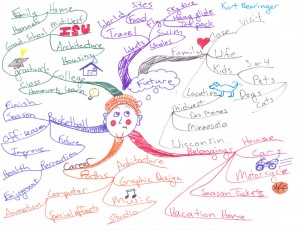 Kurt Bearinger
Family
Home
Honors
Midwest
Grad. school
ISU
Architecture
Housing
Graduate
College
World
Sites
Food
Travel
Swim
Skate
Jet pack
Future
Family
Love
visit
Life
Kids
3 or 4
Pets
Dogs
Cats
Location
Midwest
Des Moines
Minnesota
Wisconsin
Belongings
House
Cars
Motorcycle
Season Tickets
Vacation Home
Finish
Season
Basketball
Off-season
Future
Improve
Health
Recreation
Health
Enjoyment
Career
Paths
Architecture
Graphic Design
Computer
Animation
Special effects
Music
Studio